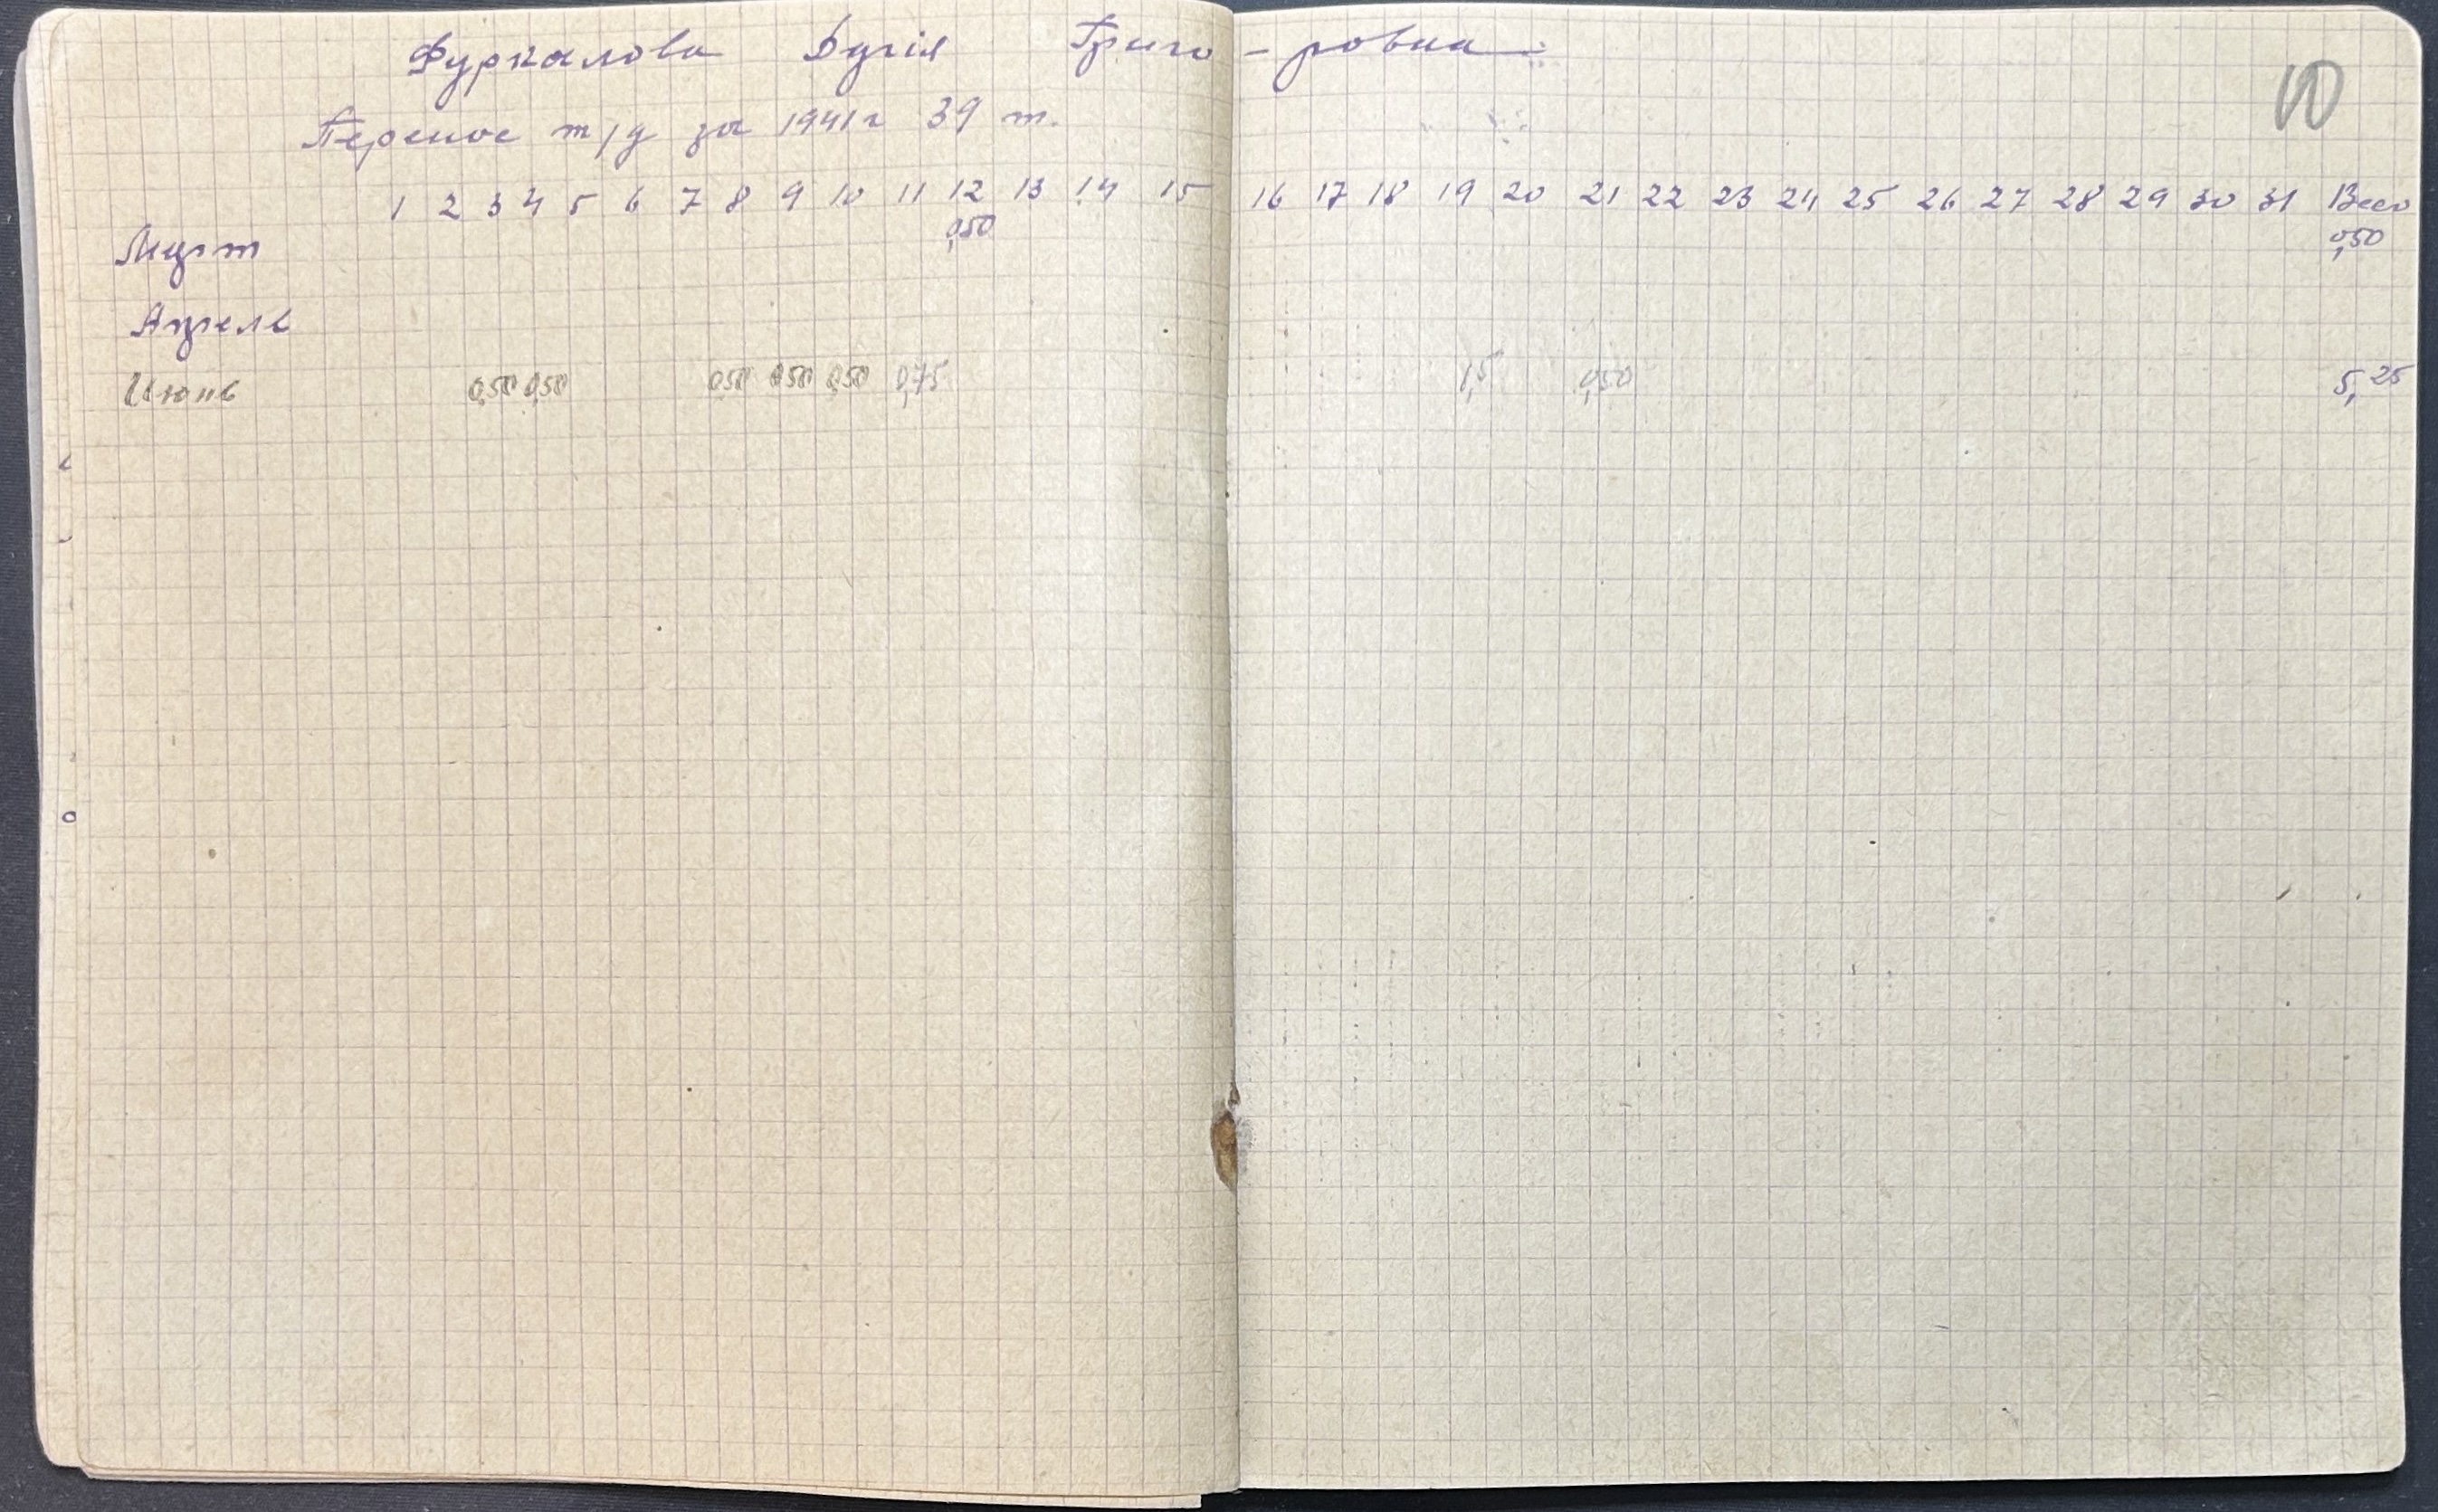 Фуркалова Дугія Григо - ровна
10
Перенос т/д за 1941 г 39 т.
1 2 3 4 5 6 7 8 9 10 11 12 13 14 15 16 17 18 19 20 21 22 23 24 25 26 27 28 29 30 31 Всего
Март 0,50 0,50
Апрель
Июнь 0,50 0,50 0,50 0,50 0,50 0,75 1,5 0,50 5,25